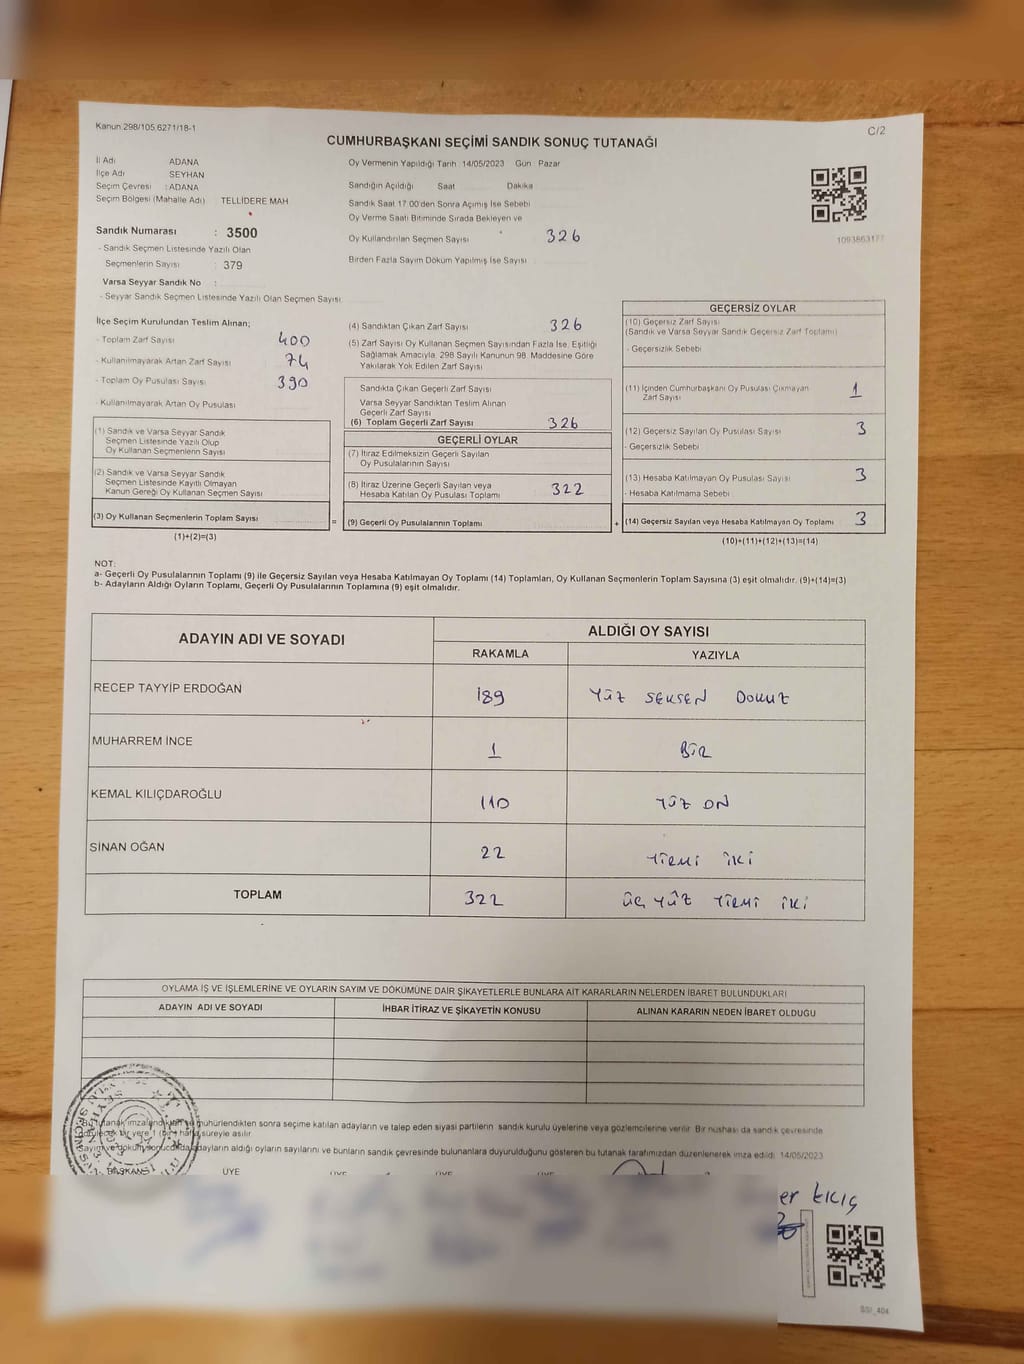 Kanun 298/105,6271/18-1
C/2
CUMHURBAŞKANI SEÇİMİ SANDIK SONUÇ TUTANAĞI
İl Adı ADANA
İlçe Adı SEYHAN
Seçim Çevresi : ADANA
Seçim Bölgesi (Mahalle Adı) TELLİDERE MAH
Sandık Numarası : 3500
- Sandık Seçmen Listesinde Yazılı Olan
Seçmenlerin Sayısı : 379
Varsa Seyyar Sandık No :
- Seyyar Sandık Seçmen Listesinde Yazılı Olan Seçmen Sayısı
Oy Vermenin Yapıldığı Tarih : 14/05/2023 Gün : Pazar
Sandığın Açıldığı Saat Dakika
Sandık Saat 17.00'den Sonra Açımış İse Sebebi
Oy Verme Saati Bitiminde Sırada Bekleyen ve
Oy Kullandırılan Seçmen Sayısı 326
Birden Fazla Sayım Döküm Yapılmış İse Sayısı
1093863177
İlçe Seçim Kurulundan Teslim Alınan;
- Toplam Zarf Sayısı 400
- Kullanılmayarak Artan Zarf Sayısı 74
- Toplam Oy Pusulası Sayısı 390
- Kullanılmayarak Artan Oy Pusulası
(1) Sandık ve Varsa Seyyar Sandık
Seçmen Listesinde Yazılı Olup
Oy Kullanan Seçmenlerin Sayısı
(2) Sandık ve Varsa Seyyar Sandık
Seçmen Listesinde Kayıtlı Olmayan
Kanun Gereği Oy Kullanan Seçmen Sayısı
(3) Oy Kullanan Seçmenlerin Toplam Sayısı
(1)+(2)=(3)
(4) Sandıktan Çıkan Zarf Sayısı 326
(5) Zarf Sayısı Oy Kullanan Seçmen Sayısından Fazla İse, Eşitliği
Sağlamak Amacıyla, 298 Sayılı Kanunun 98. Maddesine Göre
Yakılarak Yok Edilen Zarf Sayısı
Sandıkta Çıkan Geçerli Zarf Sayısı
Varsa Seyyar Sandıktan Teslim Alınan
Geçerli Zarf Sayısı
(6) Toplam Geçerli Zarf Sayısı 326
GEÇERLİ OYLAR
(7) İtiraz Edilmeksizin Geçerli Sayılan
Oy Pusulalarının Sayısı
(8) İtiraz Üzerine Geçerli Sayılan veya
Hesaba Katılan Oy Pusulası Toplamı 322
= (9) Geçerli Oy Pusulalarının Toplamı
GEÇERSİZ OYLAR
(10) Geçersiz Zarf Sayısı
(Sandık ve Varsa Seyyar Sandık Geçersiz Zarf Toplamı)
- Geçersizlik Sebebi
(11) İçinden Cumhurbaşkanı Oy Pusulası Çıkmayan
Zarf Sayısı 1
(12) Geçersiz Sayılan Oy Pusulası Sayısı 3
- Geçersizlik Sebebi
(13) Hesaba Katılmayan Oy Pusulası Sayısı 3
- Hesaba Katılmama Sebebi
+ (14) Geçersiz Sayılan veya Hesaba Katılmayan Oy Toplamı 3
(10)+(11)+(12)+(13)=(14)
NOT:
a- Geçerli Oy Pusulalarının Toplamı (9) ile Geçersiz Sayılan veya Hesaba Katılmayan Oy Toplamı (14) Toplamları, Oy Kullanan Seçmenlerin Toplam Sayısına (3) eşit olmalıdır. (9)+(14)=(3)
b- Adayların Aldığı Oyların Toplamı, Geçerli Oy Pusulalarının Toplamına (9) eşit olmalıdır.
ADAYIN ADI VE SOYADI ALDIĞI OY SAYISI
RAKAMLA YAZIYLA
RECEP TAYYİP ERDOĞAN 189 YÜZ SEKSEN DOKUZ
MUHARREM İNCE 1 BİR
KEMAL KILIÇDAROĞLU 110 YÜZ ON
SİNAN OĞAN 22 YİRMİ İKİ
TOPLAM 322 ÜÇ YÜZ YİRMİ İKİ
OYLAMA İŞ VE İŞLEMLERİNE VE OYLARIN SAYIM VE DÖKÜMÜNE DAİR ŞİKAYETLERLE BUNLARA AİT KARARLARIN NELERDEN İBARET BULUNDUKLARI
ADAYIN ADI VE SOYADI İHBAR İTİRAZ VE ŞİKAYETİN KONUSU ALINAN KARARIN NEDEN İBARET OLDUĞU
Bu tutanak imzalandıktan ve mühürlendikten sonra seçime katılan adayların ve talep eden siyasi partilerin sandık kurulu üyelerine veya gözlemcilerine verilir. Bir nüshası da sandık çevresinde
bir yere 1 (bir) hafta süreyle asılır.
Sayım ve döküm sonucunda adayların aldığı oyların sayılarını ve bunların sandık çevresinde bulunanlara duyurulduğunu gösteren bu tutanak tarafımızdan düzenlenerek imza edildi. 14/05/2023
BAŞKAN ÜYE ÜYE ÜYE ÜYE
er kılıç
SSİ_404